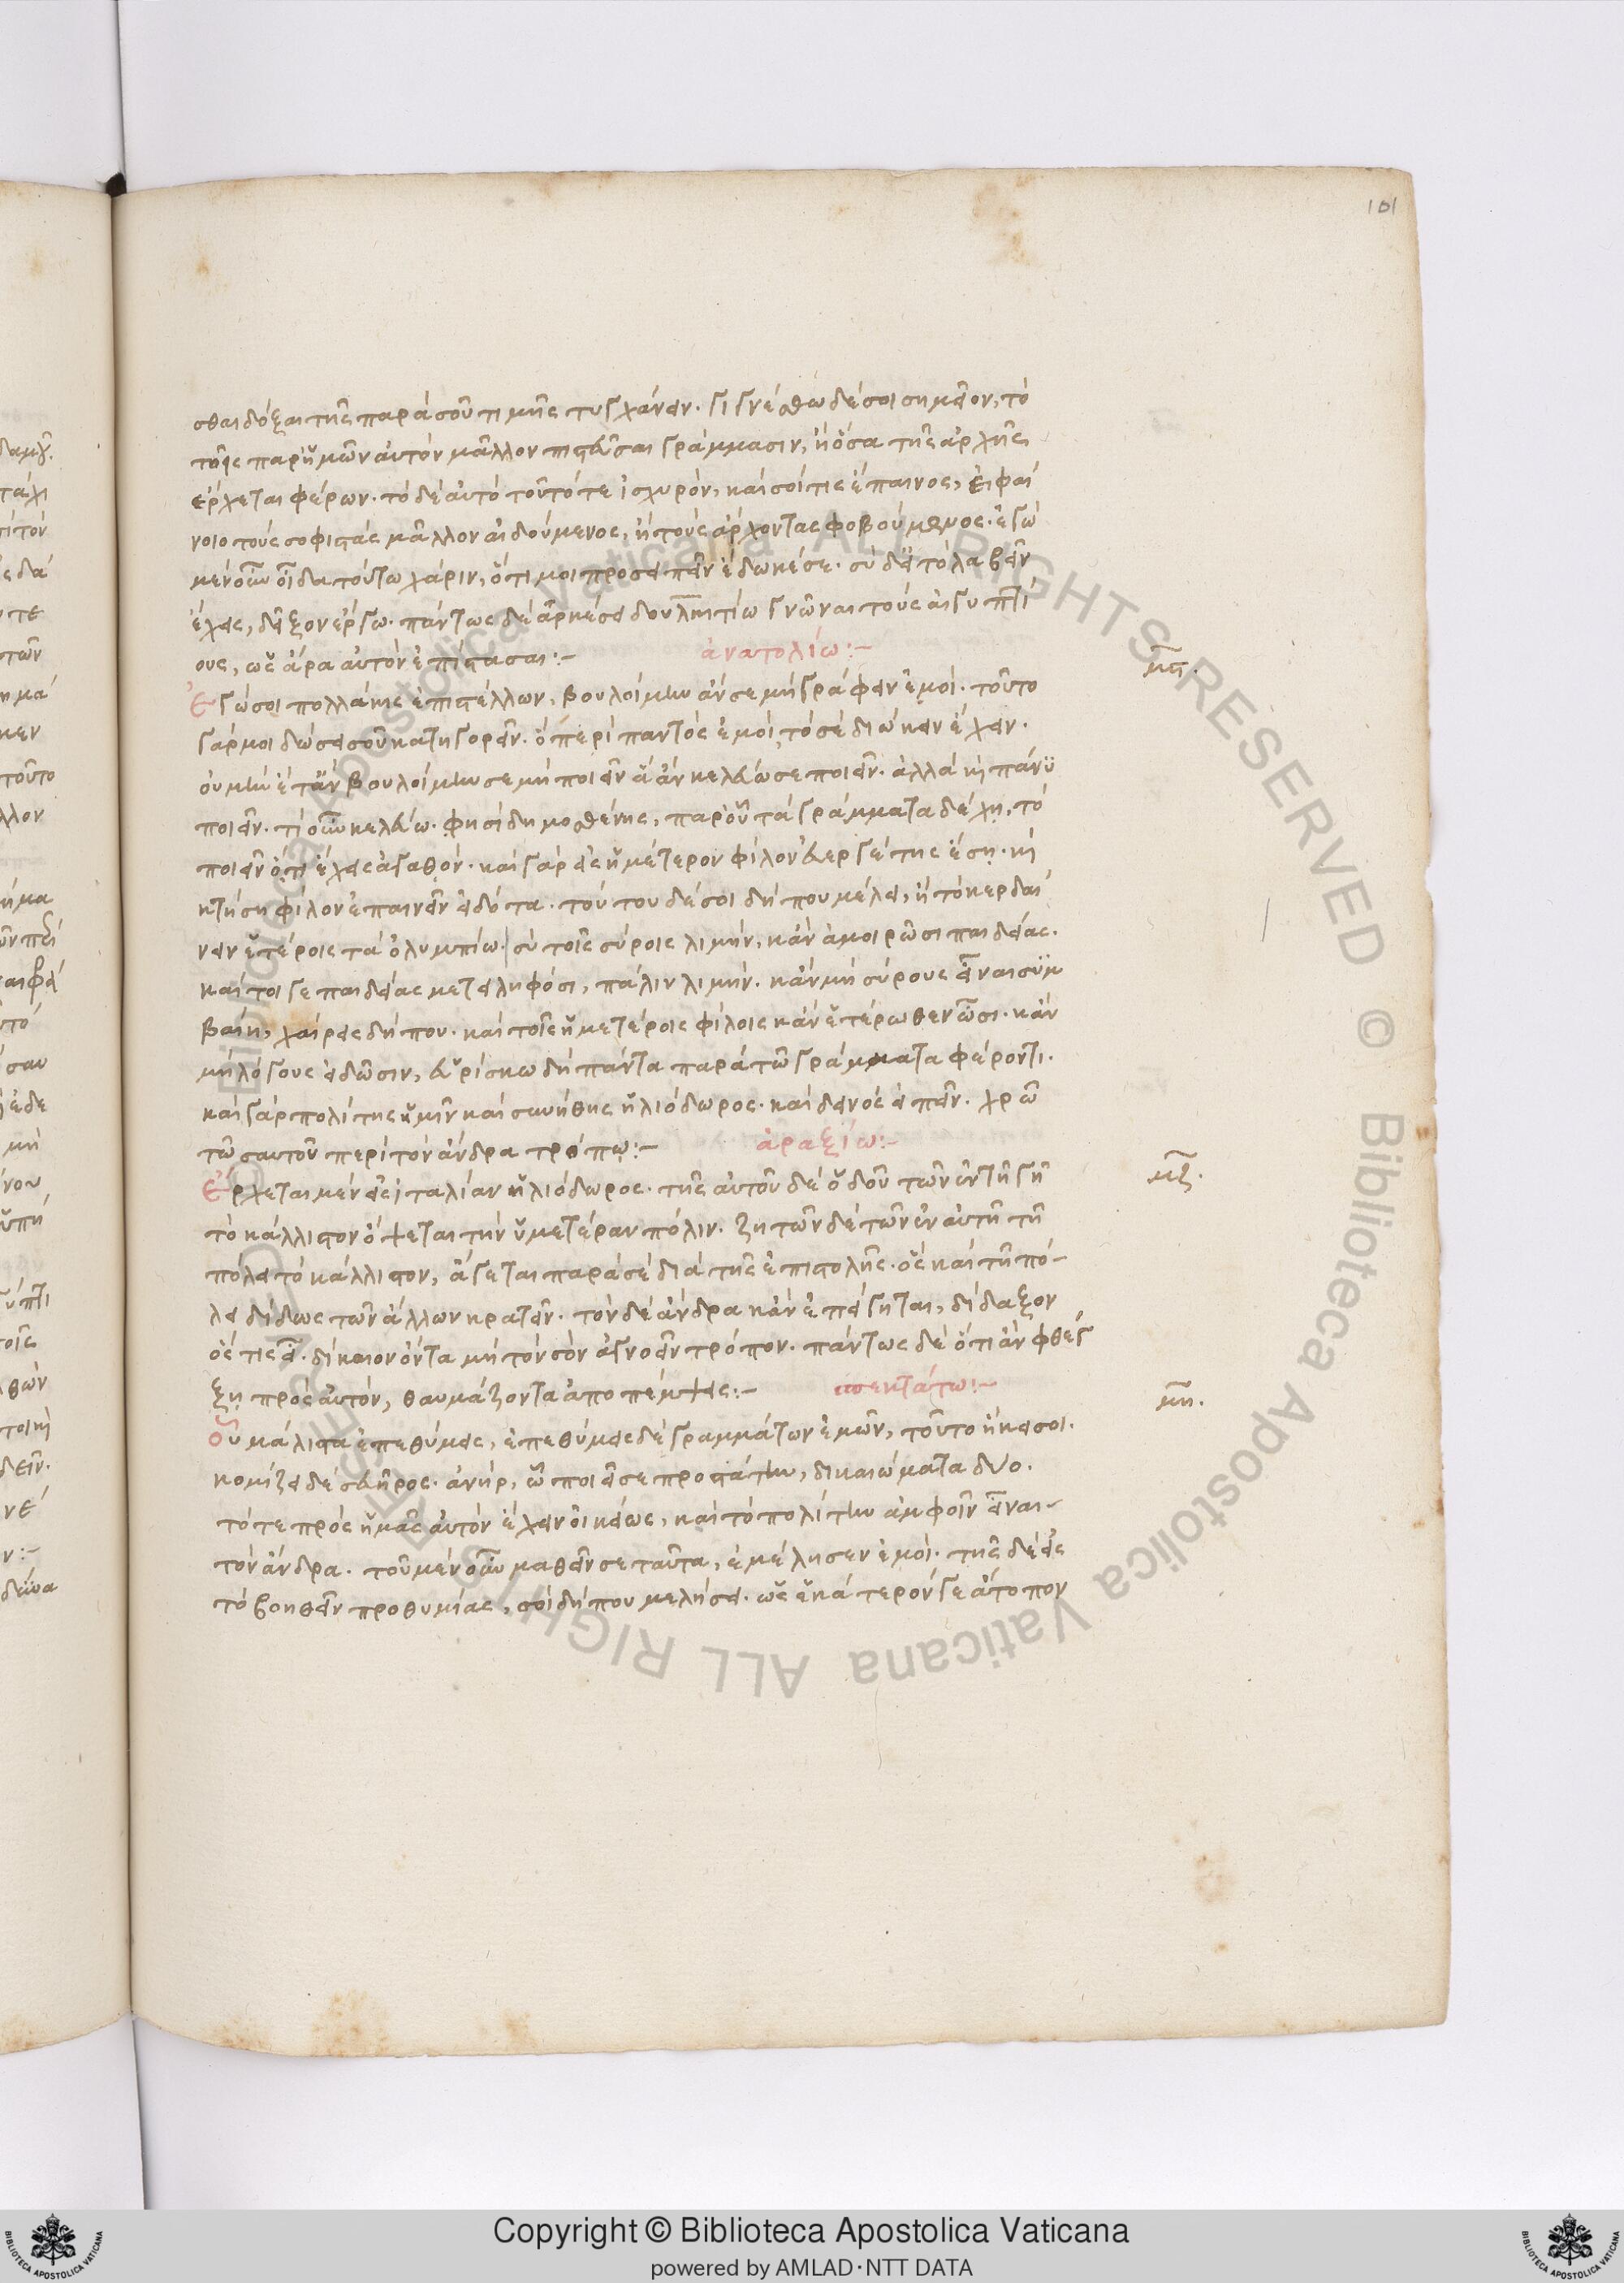 101
σθαι δόξαι τῆς παρὰ σοῦ τιμῆς τυγχάνειν. γιγνέσθω δέ σοι σημεῖον, τὸ
τοῖς παρ' ἡμῶν αὐτὸν μᾶλλον πιστεῦσαι γράμμασιν, ἢ ὅσα τῆς ἀρχῆς
ἔρχεται φέρων. τὸ δὲ αὐτὸ τοῦτό τε ἰσχυρὸν, καὶ σοί τις ἔπαινος, εἰ φαί
νοιο τοὺς σοφιστὰς μᾶλλον αἰδούμενος, ἢ τοὺς ἄρχοντας φοβούμενος. ἐγὼ
μὲν οὖν οἶδα τούτω χάριν, ὅτι μοι προσειπεῖν ἔδωκέ σε. σὺ δὲ τὸ λαβεῖν
ἔχεις, δεῖξον ἔργω. πάντως δὲ ἀρκέσει γνῶναι τοὺς αἰγυπτί
ους, ὡς ἄρα αὐτὸν ἐπίστασαι:-
ἀνατολίω:-
μϛ.
Ἐγώ σοι πολλάκις ἐπιστέλλων, βουλοίμην ἄν σε μὴ γράφειν ἐμοί. τοῦτο
γάρ μοι δώσει σοῦ κατηγορεῖν. ὃ περὶ παντὸς ἐμοὶ, τὸ σὲ διώκειν ἔχειν.
οὐ μὴν ἔτ' ἂν βουλοίμην σε μὴ ποιεῖν ἃ ἂν κελεύω σε ποιεῖν. ἀλλὰ καὶ πάνυ
ποιεῖν. τί οὖν κελεύω. φησὶ δημοσθένης, παρ' οὗ τὰ γράμματα δέχῃ, τὸ
ποιεῖν ὅτι ἔχεις ἀγαθόν. καὶ γὰρ εἰς ἡμέτερον φίλον εὐεργέτης ἔσῃ. καὶ
κτήσῃ φίλον ἐπαινεῖν εἰδότα. τούτου δέ σοι δήπου μέλει, ἢ τὸ κερδαί
νειν ἑτέροις τὰ ὀλυμπίω. σὺ τοῖς σύροις λιμὴν, κἂν ἀμοιρῶσι παιδείας.
καίτοι γε παιδείας μετειληφόσι, πάλιν λιμήν. κἂν μὴ σύρους εἶναι συμ
βαίη, χαίρεις δήπου. καὶ τοῖς ἡμετέροις φίλοις κἂν ἑτέρωθεν ὦσι. κἂν
μὴ λόγους εἰδῶσιν, εὑρίσκω δὴ πάντα παρὰ τῶ γράμματα φέροντι.
καὶ γὰρ πολίτης ἡμῖν καὶ συνήθης ἡλιόδωρος. καὶ δεινὸς εἰπεῖν. χρῶ
τῶ σαυτοῦ περὶ τὸν ἄνδρα τρόπῳ:-
ἀραξίω:-
μζ.
Ἔρχεται μὲν εἰς ἰταλίαν ἡλιόδωρος. τῆς αὐτοῦ δὲ ὁδοῦ τῶν ἐν τῇ γῇ
τὸ κάλλιστον ὄψεται τὴν ὑμετέραν πόλιν. ζητῶν δὲ τῶν ἐν αὐτῇ τῇ
πόλει τὸ κάλλιστον, ἄγεται παρὰ σὲ διὰ τῆς ἐπιστολῆς. ὃς καὶ τῇ πό-
λει δίδως τῶν ἄλλων κρατεῖν. τὸν δὲ ἄνδρα κἂν ἐπείγηται, δίδαξον
ὅς τις εἶ. δίκαιον ὄντα μὴ τὸν σὸν ἀγνοεῖν τρόπον. πάντως δὲ ὅτι ἂν φθέγ
ξῃ πρὸς αὐτὸν, θαυμάζοντα ἀποπέμψεις:-
σπεκτάτω:-
μη.
Οὗ μάλιστα ἐπεθύμεις, ἐπεθύμεις δὲ γραμμάτων ἐμῶν, τοῦτο ἥκει σοι.
κομίζει δὲ σευῆρος. ἀνὴρ, ὧ ποιεῖ σε προστάτην, δικαιώματα δύο.
τό τε πρὸς ἡμᾶς αὐτὸν ἔχειν οἰκείως, καὶ τὸ πολίτην ἀμφοῖν εἶναι
τὸν ἄνδρα. τοῦ μὲν οὖν μαθεῖν σε ταῦτα, ἐμέλησεν ἐμοί. τῆς δὲ εἰς
τὸ βοηθεῖν προθυμίας, σοὶ δήπου μελήσει. ὡς ἑκάτερόν γε ἄτοπον
Copyright © Biblioteca Apostolica Vaticana
powered by AMLAD·NTT DATA